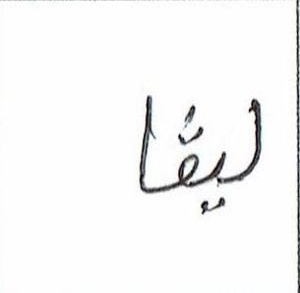 ليقا